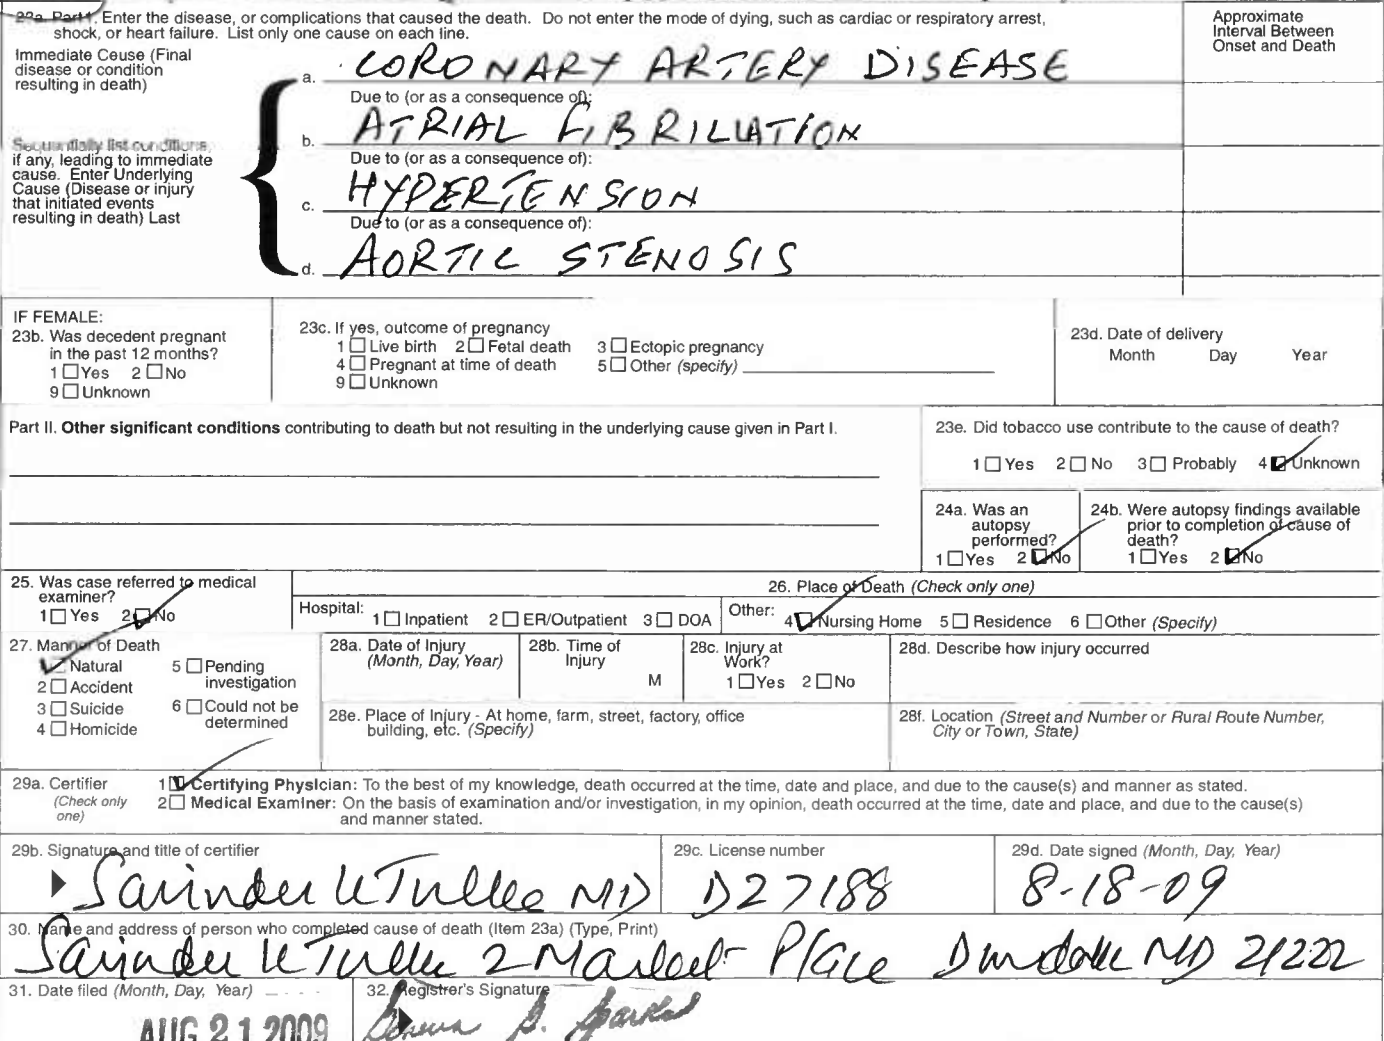 23a. Part I. Enter the disease, or complications that caused the death. Do not enter the mode of dying, such as cardiac or respiratory arrest,
shock, or heart failure. List only one cause on each line.
Approximate
Interval Between
Onset and Death
Immediate Cause (Final
disease or condition
resulting in death)
a. CORONARY ARTERY DISEASE
Due to (or as a consequence of):
b. ATRIAL FIBRILLATION
Sequentially list conditions,
if any, leading to immediate
cause. Enter Underlying
Cause (Disease or injury
that initiated events
resulting in death) Last
Due to (or as a consequence of):
c. HYPERTENSION
Due to (or as a consequence of):
d. AORTIC STENOSIS
IF FEMALE:
23b. Was decedent pregnant
in the past 12 months?
1 Yes 2 No
9 Unknown
23c. If yes, outcome of pregnancy
1 Live birth 2 Fetal death 3 Ectopic pregnancy
4 Pregnant at time of death 5 Other (specify)
9 Unknown
23d. Date of delivery
Month Day Year
Part II. Other significant conditions contributing to death but not resulting in the underlying cause given in Part I.
23e. Did tobacco use contribute to the cause of death?
1 Yes 2 No 3 Probably 4 Unknown
24a. Was an
autopsy
performed?
1 Yes 2 No
24b. Were autopsy findings available
prior to completion of cause of
death?
1 Yes 2 No
25. Was case referred to medical
examiner?
1 Yes 2 No
26. Place of Death (Check only one)
Hospital: 1 Inpatient 2 ER/Outpatient 3 DOA
Other: 4 Nursing Home 5 Residence 6 Other (Specify)
27. Manner of Death
Natural 5 Pending
investigation
2 Accident
3 Suicide 6 Could not be
determined
4 Homicide
28a. Date of Injury
(Month, Day, Year)
28b. Time of
Injury
M
28c. Injury at
Work?
1 Yes 2 No
28d. Describe how injury occurred
28e. Place of Injury - At home, farm, street, factory, office
building, etc. (Specify)
28f. Location (Street and Number or Rural Route Number,
City or Town, State)
29a. Certifier
(Check only
one)
1 Certifying Physician: To the best of my knowledge, death occurred at the time, date and place, and due to the cause(s) and manner as stated.
2 Medical Examiner: On the basis of examination and/or investigation, in my opinion, death occurred at the time, date and place, and due to the cause(s)
and manner stated.
29b. Signature and title of certifier
MD
29c. License number
D27188
29d. Date signed (Month, Day, Year)
8-18-09
30. Name and address of person who completed cause of death (Item 23a) (Type, Print)
2 Market Place Dundalk MD 21222
31. Date filed (Month, Day, Year)
AUG 21 2009
32. Registrar's Signature